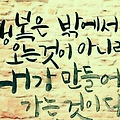 행복은 밖에서
오는것이 아니라
내가 만들어
가는것이다